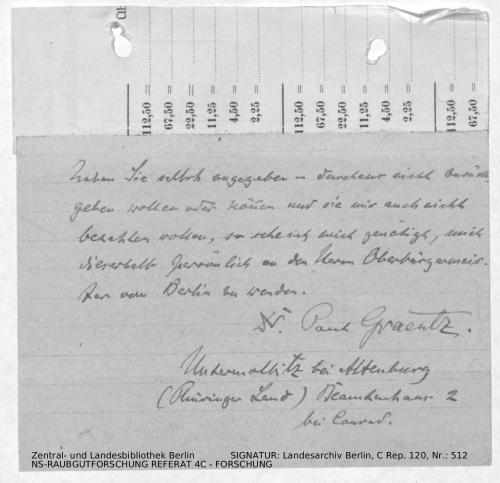 112,50 =
67,50 =
22,50 =
11,25 =
4,50 =
2,25 =
112,50 =
67,50 =
22,50 =
11,25 =
4,50 =
2,25 =
112,50 =
67,50 =
haben Sie selbst angegeben – durchaus nicht zurück
geben wollen oder können und sie mir auch nicht
bezahlen wollen, so sehe ich mich genötigt, mich
dieserhalb persönlich an den Herrn Oberbürgermeis-
ter von Berlin zu wenden.
Dr. Paul Graentz.
bei Altenburg
(Thüringer Land) Beamtenhaus 2
bei Conrad.
Zentral- und Landesbibliothek Berlin SIGNATUR: Landesarchiv Berlin, C Rep. 120, Nr.: 512
NS-RAUBGUTFORSCHUNG REFERAT 4C - FORSCHUNG